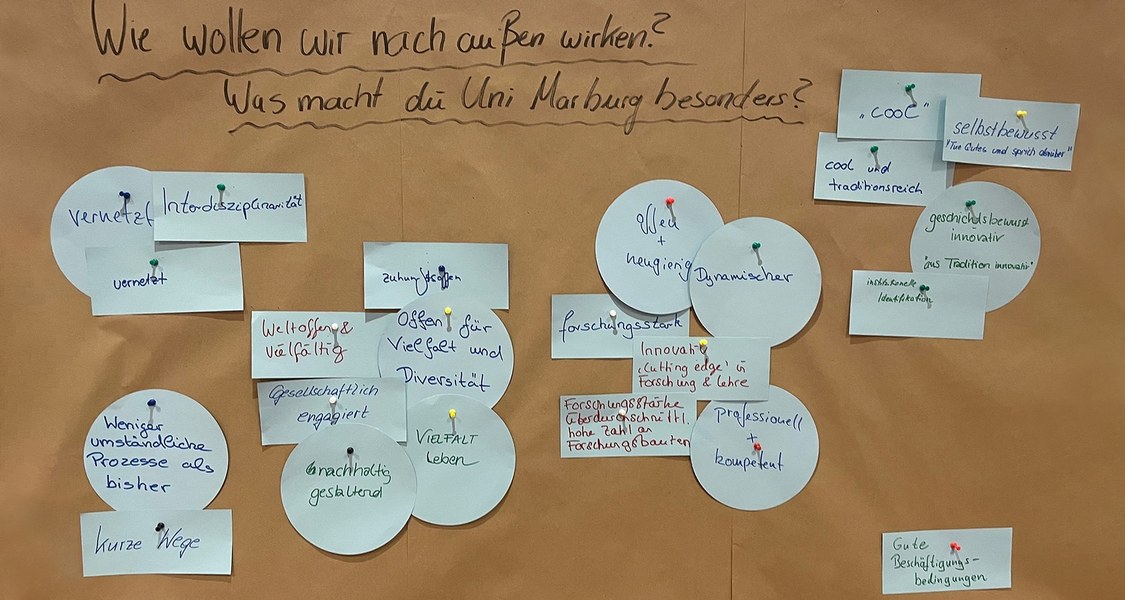 Wie wollen wir nach außen wirken?
Was macht die Uni Marburg besonders?
vernetzt
Interdisziplinarität
vernetzt
Weniger
umständliche
Prozesse als
bisher
Kurze Wege
zukunftsoffen
Weltoffen &
Vielfältig
Offen für
Vielfalt und
Diversität
Gesellschaftlich
engagiert
VIELFALT
Leben
nachhaltig
gestaltend
offen
+
neugierig
Dynamischer
forschungsstark
Innovativ
„Cutting edge" in
Forschung & Lehre
Forschungsstärke
überdurchschnittl.
hohe Zahl an
Forschungsbauten
professionell
+
kompetent
„cool"
selbstbewusst
"Tue Gutes und sprich darüber"
cool und
traditionsreich
geschichtsbewusst
innovativ
"aus Tradition innovativ"
institutionelle
Identifikation
Gute
Beschäftigungs-
bedingungen